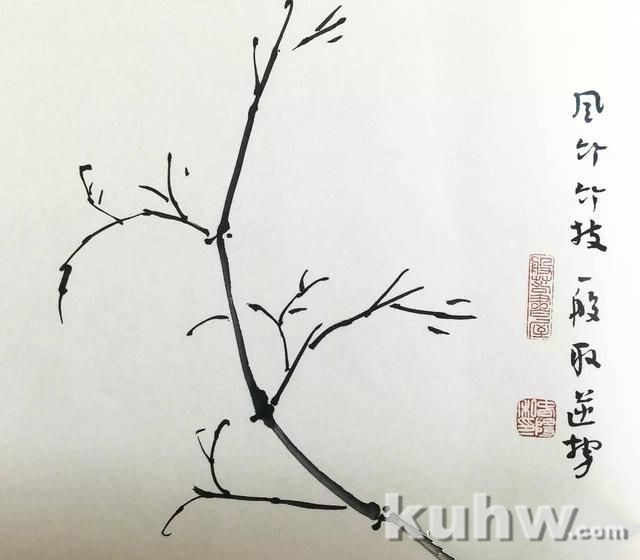 风竹竹枝一般取逆势
般若書屋
kuhw.com